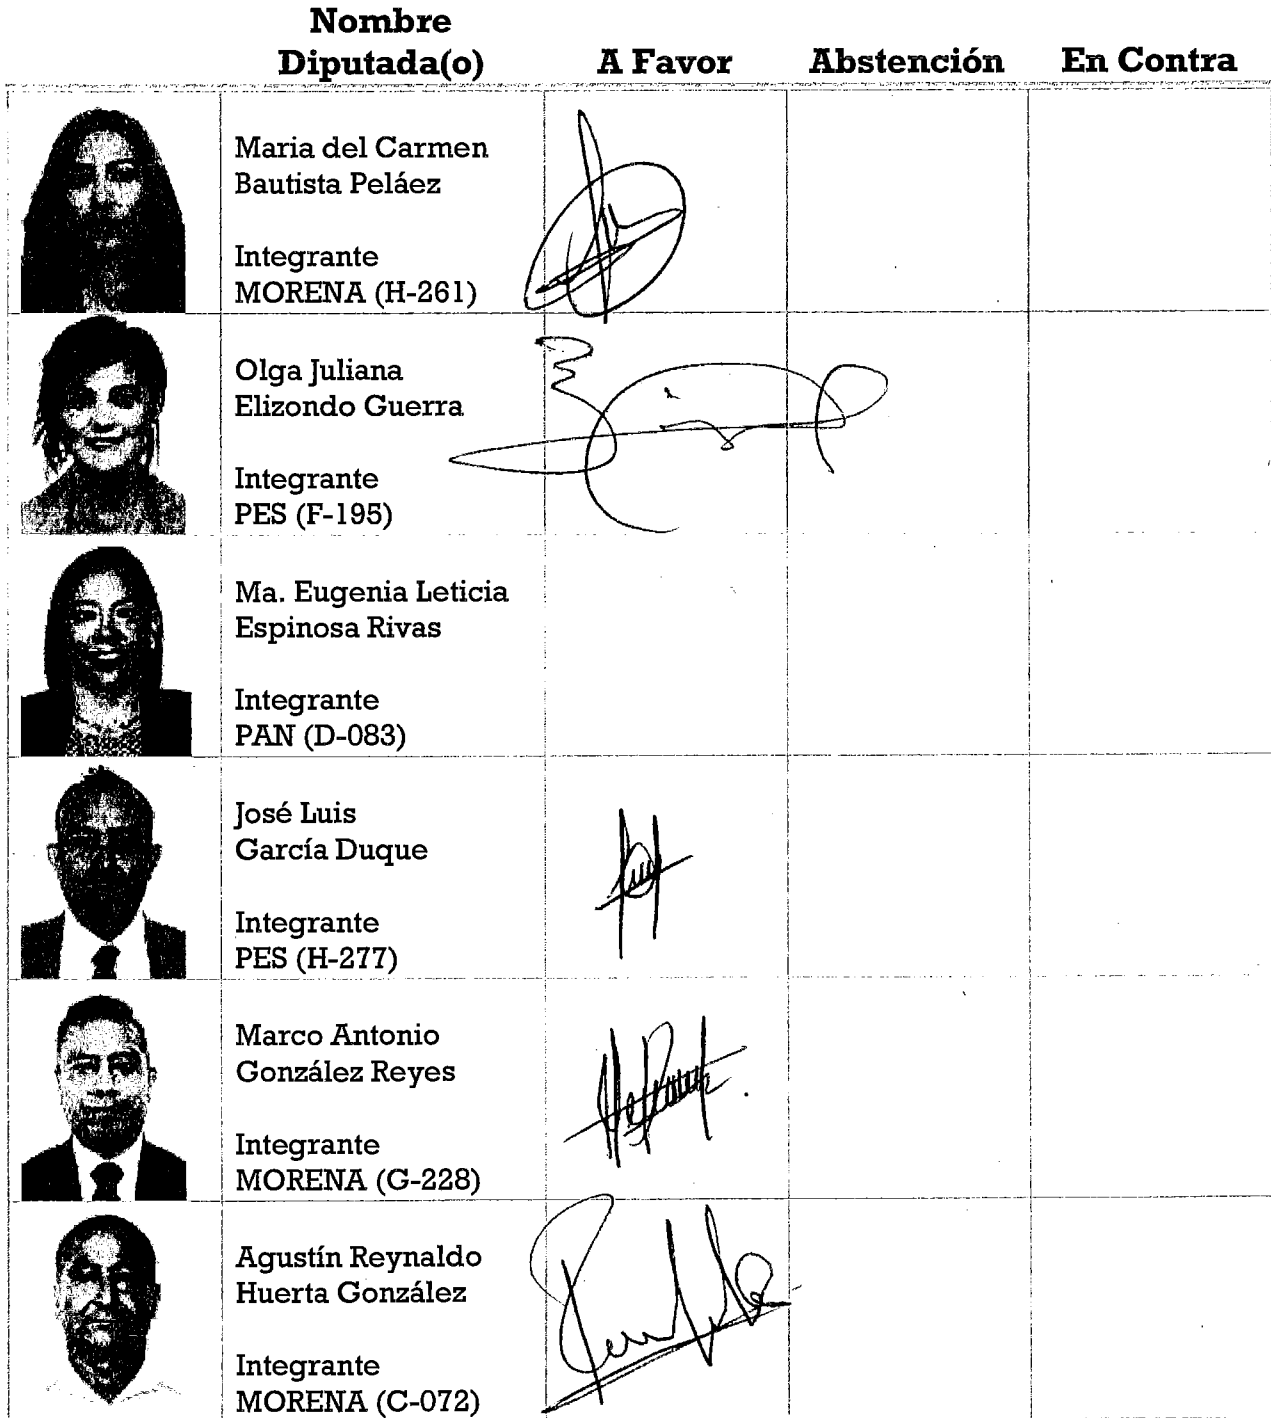 Nombre
Diputada(o)
A Favor
Abstención
En Contra
Maria del Carmen
Bautista Peláez
Integrante
MORENA (H-261)
Olga Juliana
Elizondo Guerra
Integrante
PES (F-195)
Ma. Eugenia Leticia
Espinosa Rivas
Integrante
PAN (D-083)
José Luis
García Duque
Integrante
PES (H-277)
Marco Antonio
González Reyes
Integrante
MORENA (G-228)
Agustín Reynaldo
Huerta González
Integrante
MORENA (C-072)